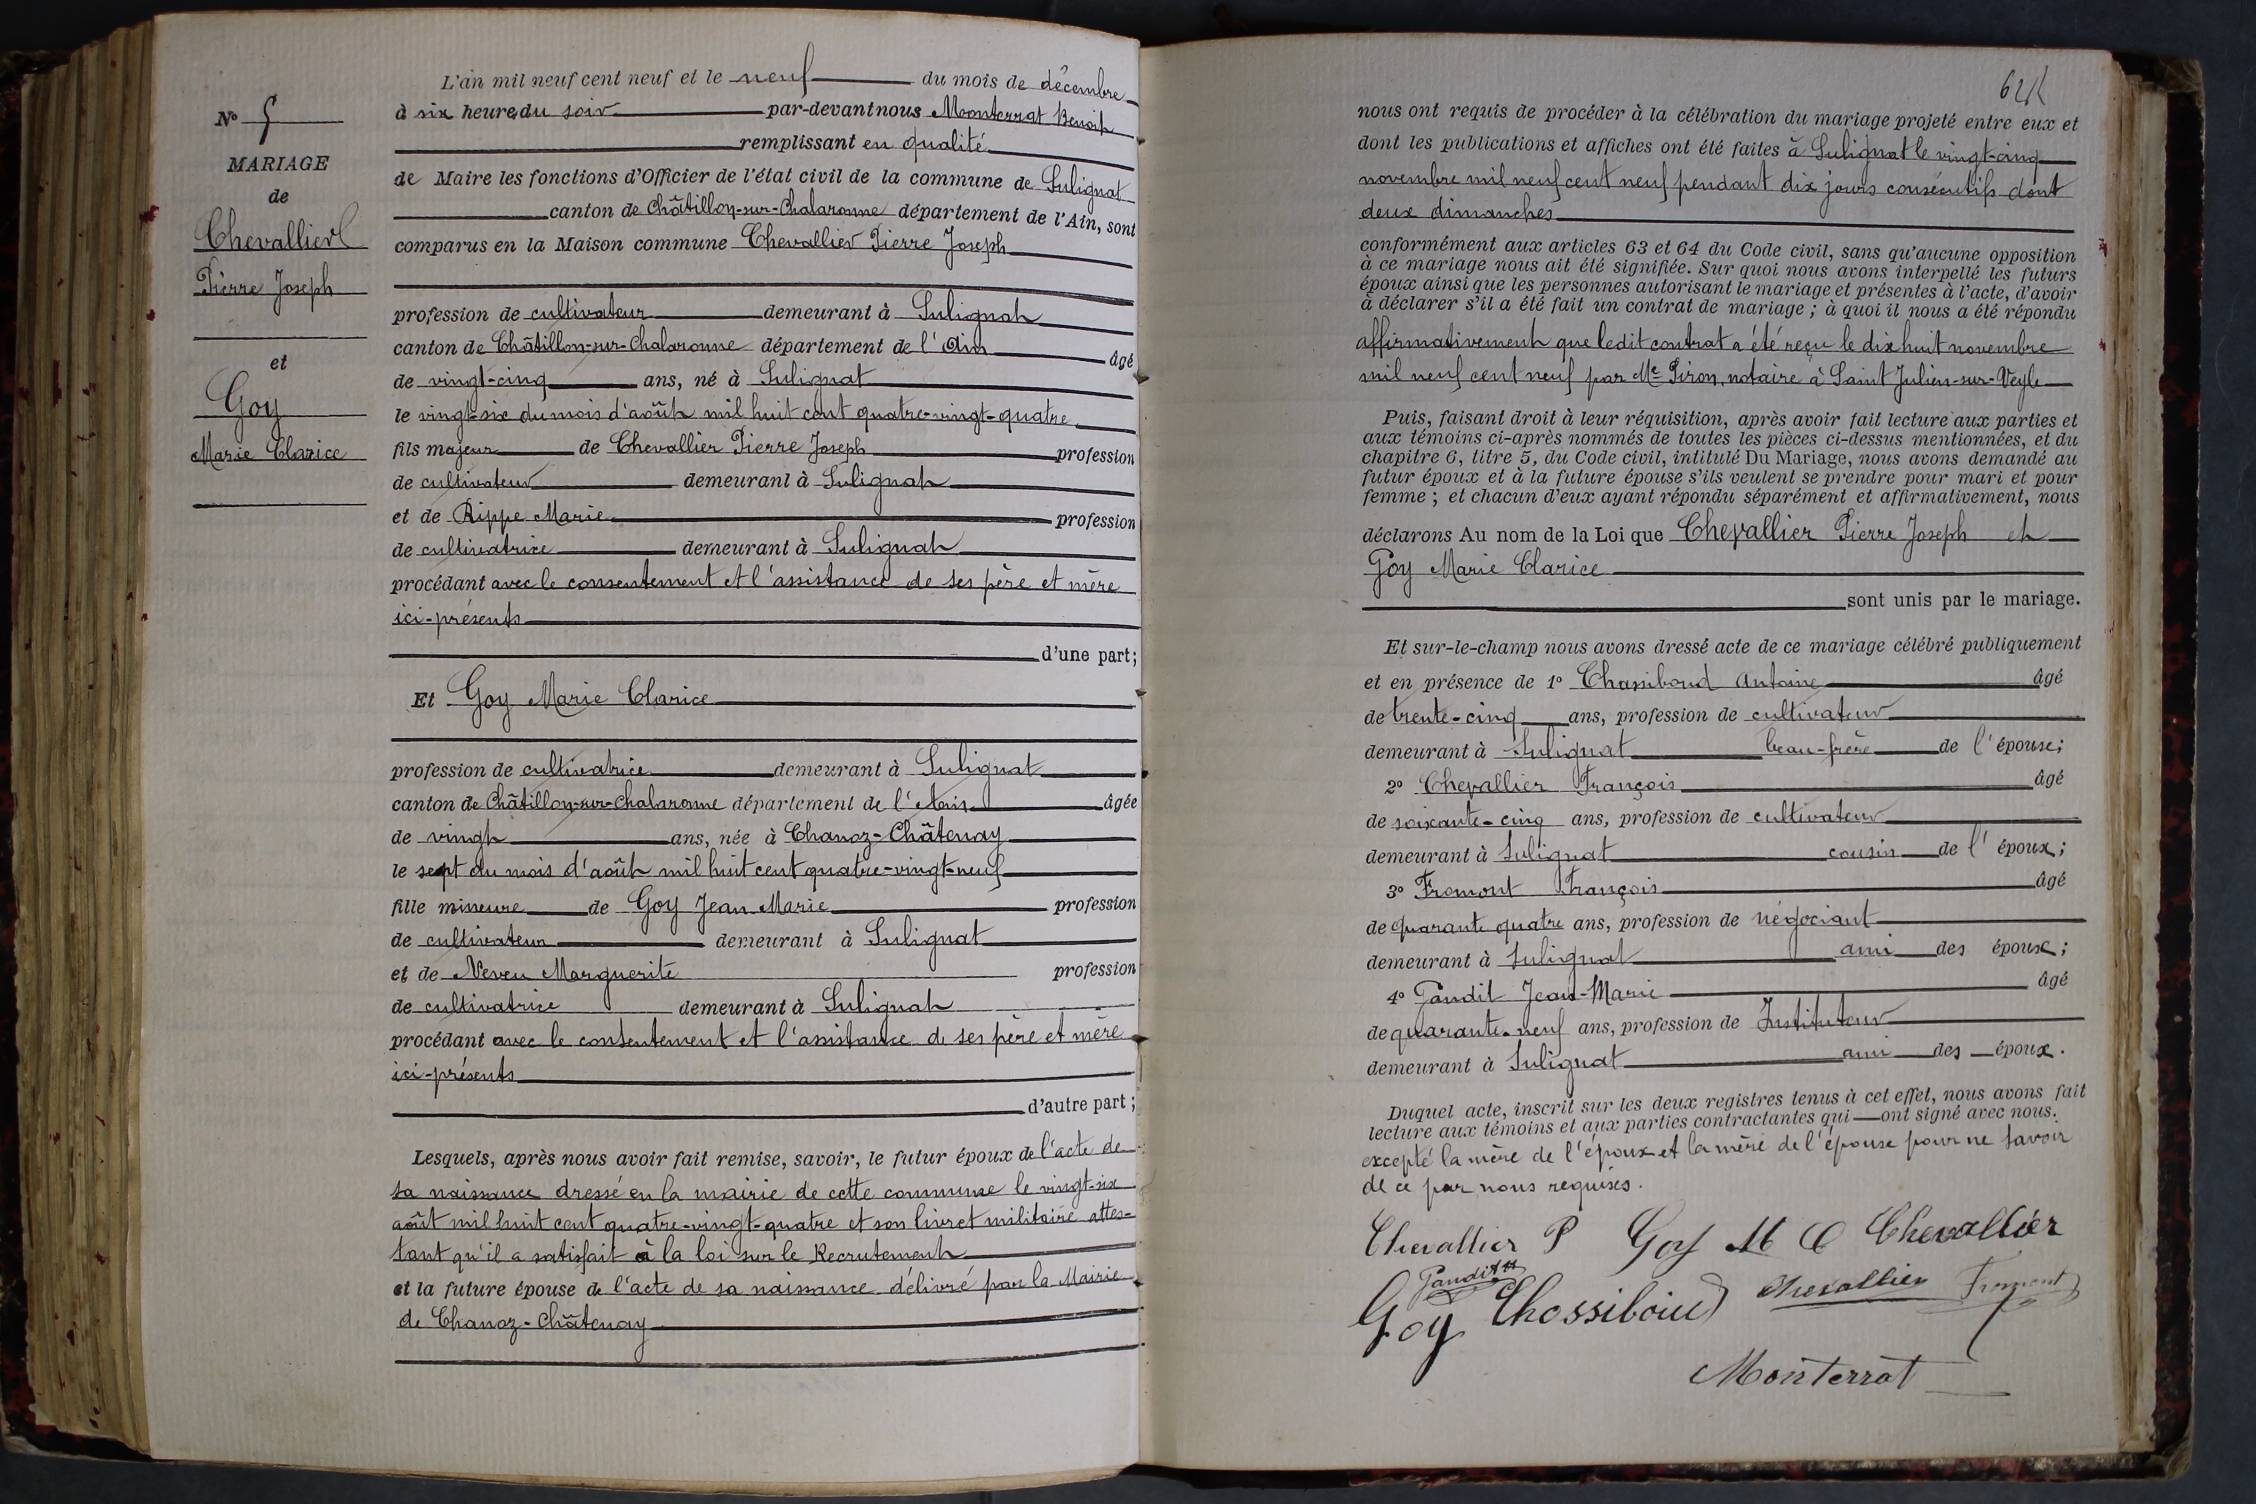 N° 5
MARIAGE
de
Chevallier
Pierre Joseph
et
Goy
Marie Clarice
L'an mil neuf cent neuf et le neuf du mois de décembre
à six heures du soir par-devant nous Monterrat Benoit
remplissant en qualité
de Maire les fonctions d'Officier de l'état civil de la commune de Sulignat
canton de Châtillon-sur-Chalaronne département de l'Ain, sont
comparus en la Maison commune Chevallier Pierre Joseph
profession de cultivateur demeurant à Sulignat
canton de Châtillon-sur-Chalaronne département de l'Ain âgé
de vingt-cinq ans, né à Sulignat
le vingt-six du mois d'août mil huit cent quatre-vingt-quatre
fils majeur de Chevallier Pierre Joseph profession
de cultivateur demeurant à Sulignat
et de Rippe Marie profession
de cultivatrice demeurant à Sulignat
procédant avec le consentement et l'assistance de ses père et mère
ici-présents
d'une part;
Et Goy Marie Clarice
profession de cultivatrice demeurant à Sulignat
canton de Châtillon-sur-Chalaronne département de l'Ain âgée
de vingt ans, née à Chanoz-Châtenay
le sept du mois d'août mil huit cent quatre-vingt-neuf
fille mineure de Goy Jean Marie profession
de cultivateur demeurant à Sulignat
et de Neveu Marguerite profession
de cultivatrice demeurant à Sulignat
procédant avec le consentement et l'assistance de ses père et mère
ici-présents
d'autre part;
Lesquels, après nous avoir fait remise, savoir, le futur époux de l'acte de
sa naissance dressé en la mairie de cette commune le vingt-six
août mil huit cent quatre-vingt-quatre et son livret militaire attes-
tant qu'il a satisfait à la loi sur le Recrutement
et la future épouse de l'acte de sa naissance délivré par la Mairie
de Chanoz-Châtenay
nous ont requis de procéder à la célébration du mariage projeté entre eux et
dont les publications et affiches ont été faites à Sulignat le vingt-cinq
novembre mil neuf cent neuf pendant dix jours consécutifs dont
deux dimanches
conformément aux articles 63 et 64 du Code civil, sans qu'aucune opposition
à ce mariage nous ait été signifiée. Sur quoi nous avons interpellé les futurs
époux ainsi que les personnes autorisant le mariage et présentes à l'acte, d'avoir
à déclarer s'il a été fait un contrat de mariage; à quoi il nous a été répondu
affirmativement que ledit contrat a été reçu le dix huit novembre
mil neuf cent neuf par Me Piron, notaire à Saint Julien-sur-Veyle
Puis, faisant droit à leur réquisition, après avoir fait lecture aux parties et
aux témoins ci-après nommés de toutes les pièces ci-dessus mentionnées, et du
chapitre 6, titre 5, du Code civil, intitulé Du Mariage, nous avons demandé au
futur époux et à la future épouse s'ils veulent se prendre pour mari et pour
femme; et chacun d'eux ayant répondu séparément et affirmativement, nous
déclarons Au nom de la Loi que Chevallier Pierre Joseph et
Goy Marie Clarice
sont unis par le mariage.
Et sur-le-champ nous avons dressé acte de ce mariage célébré publiquement
et en présence de 1° Chassiboud Antoine âgé
de trente-cinq ans, profession de cultivateur
demeurant à Sulignat beau-frère de l'épouse;
2° Chevallier François âgé
de soixante-cinq ans, profession de cultivateur
demeurant à Sulignat cousin de l'époux;
3° Fromont François âgé
de quarante quatre ans, profession de négociant
demeurant à Sulignat ami des époux;
4° Pandit Jean-Marie âgé
de quarante-neuf ans, profession de Instituteur
demeurant à Sulignat ami des époux.
Duquel acte, inscrit sur les deux registres tenus à cet effet, nous avons fait
lecture aux témoins et aux parties contractantes qui ont signé avec nous.
excepté la mère de l'époux et la mère de l'épouse pour ne savoir
de ce par nous requises.
Chevallier P Goy M C Chevallier
Pandit
Goy Chossiboud Chevallier Fromont
Monterrat